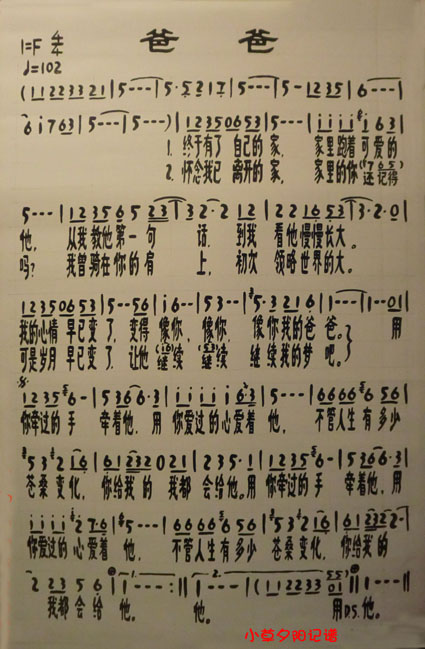 爸爸
1=F 4/4
♩=102
(1 1 2 2 3 3 2 1 | 5 - - - | 5·5 2 1 7 | 5 - - - | 5 - 1 2 3 5 | 6 - - - |
6 i 7 6 3 | 5 - - - | 5 - - - ) | 1 2 3 5 0 6 5 3 | 5 - - - | i i i i i 6 3 |
1. 终于有了 自己的 家, 家里跑着 可爱的
2. 怀念我已 离开的 家, 家里的你 还记得
5 - - - | 1 2 3 5 6 5 2 3 | 3 2 · 2 | 2 2 1 6 5 3 | 3 · 2 · 0 |
他, 从我教他第一句 话, 到我 看他慢慢长大。
吗? 我曾骑在你的肩 上, 初次 领略世界的大。
1 2 3 5 0 6 5 3 | 5 - - 5 6 | i 6 - - | 5 3 - - | 5 · 3 2 1 6 | 1 - - - | 1 - - 0 1 |
我的心情 早已变了, 变得像你, 像你, 像你我的爸爸。 用
可是岁月 早已变了, 让他 继续 继续 继续我的梦 吧。
1 2 3 5 6 - | 5 3 6 6 · 3 | i i i i i 6 · 3 | 5 - - - | 6 6 6 6 6 5 6 |
你牵过的 手 牵着他, 用 你爱过的心爱着 他, 不管人生 有多少
5 3 2 1 6 | 6 1 2 3 2 0 2 1 | 2 3 5 · 1 | 1 2 3 5 6 - | 5 3 6 6 · 3 |
苍桑变化, 你给我的 我都 会给他。用 你牵过的 手 牵着他, 用
i i i i 2 7 · 6 | 5 - - - | 6 6 6 6 6 5 6 | 5 3 2 1 6 | 6 1 2 3 2 2 - |
你爱过的 心 爱着 他, 不管人生 有多少 苍桑变化, 你给我的
2 2 3 5 6 | 1 - - - :‖ 1 - - - | (1 1 2 2 3 3 0 1 ‖ 1 - - - ‖
我都 会 给 他。 他。 用D.S.他。
小草夕阳记谱